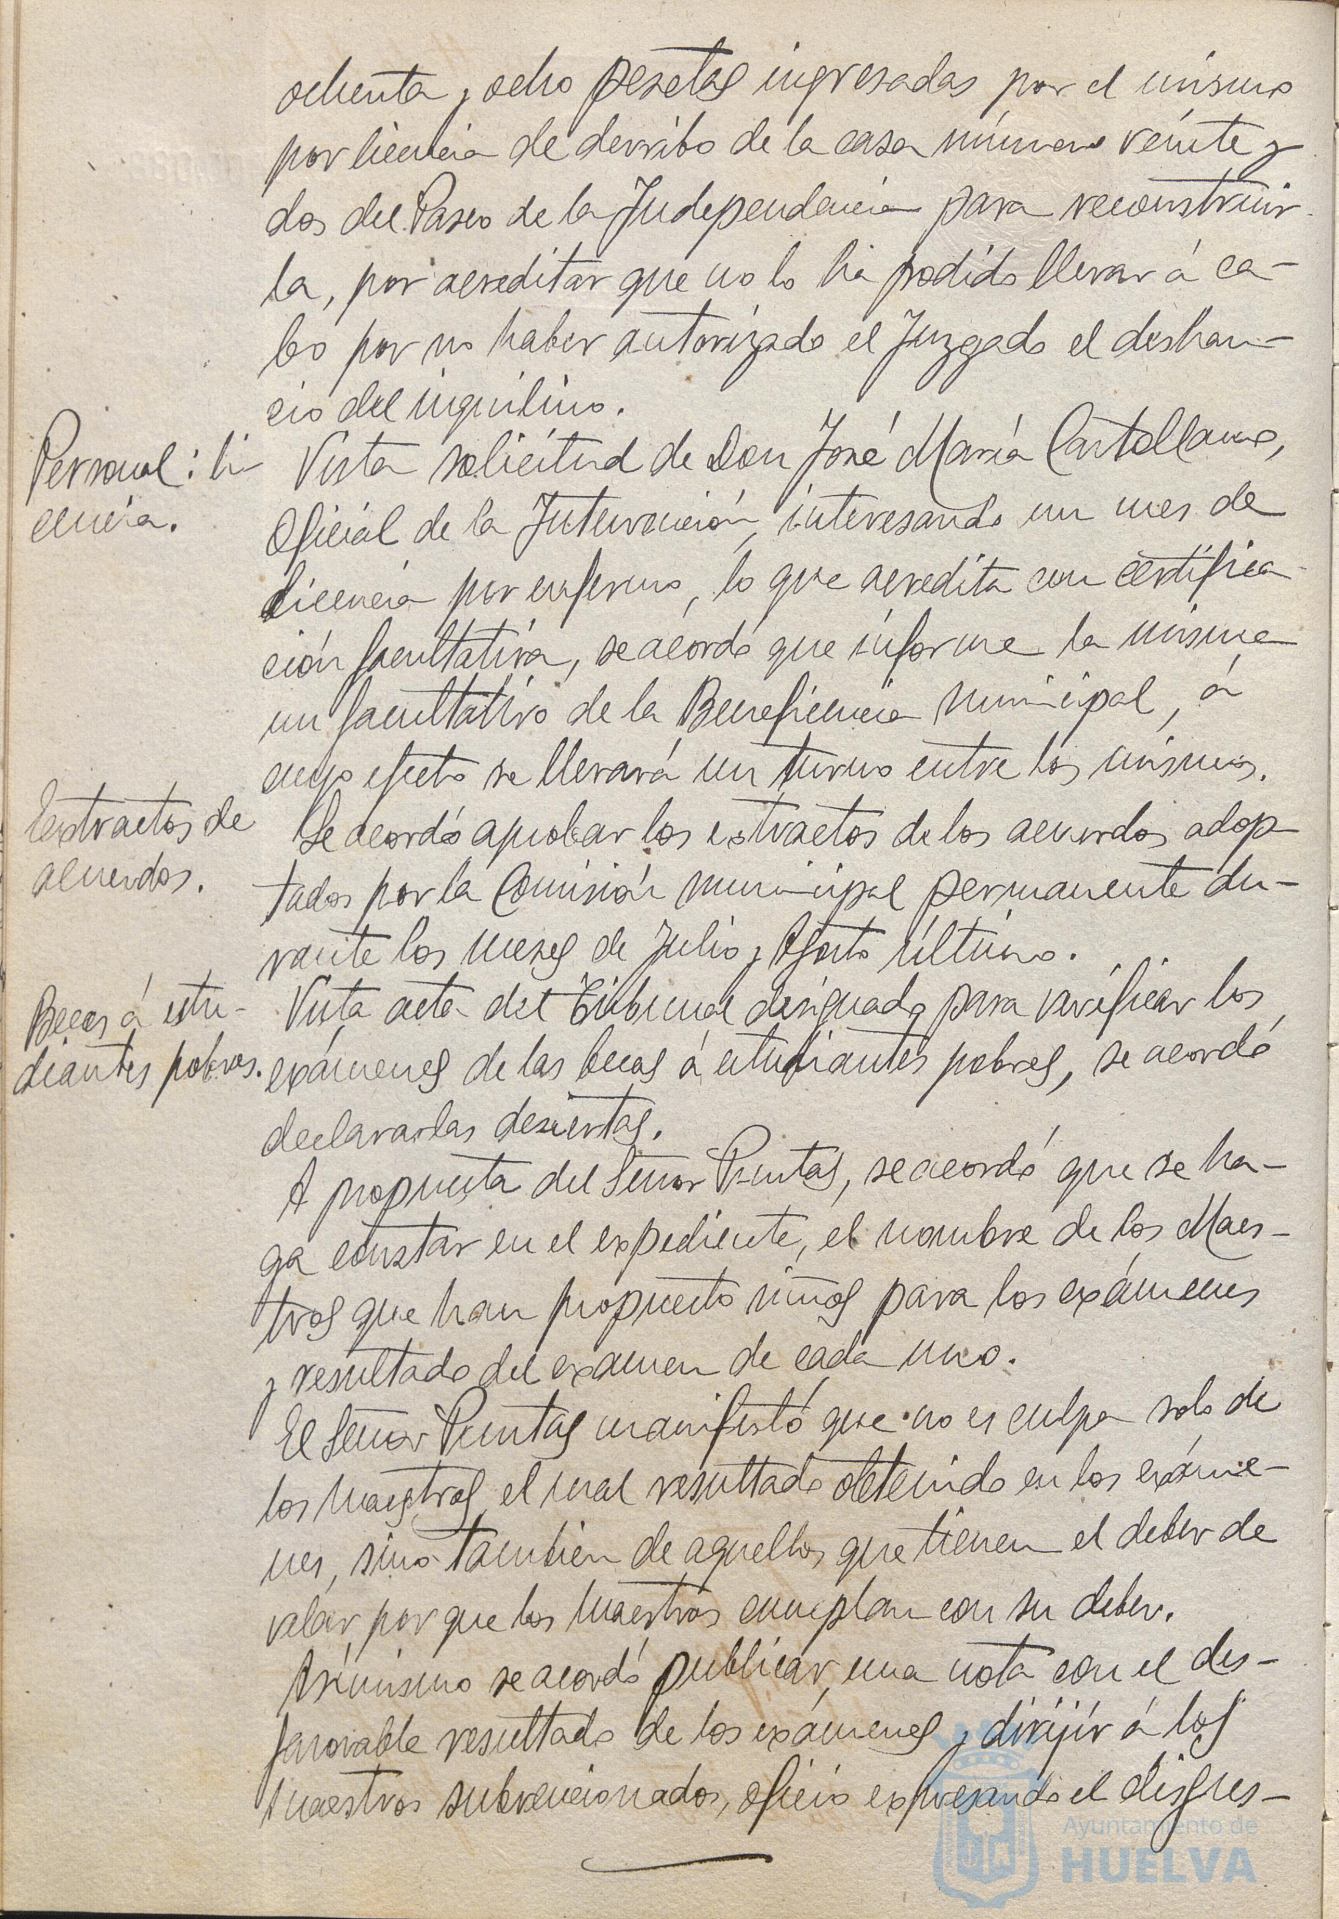 ochenta y ocho pesetas ingresadas por el mismo
por licencia de derribo de la casa número veinte y
dos del Paseo de la Independencia para reconstruir
la, por acreditar que no lo ha podido llevar á ca-
bo por no haber autorizado el Juzgado el deshau-
cio del inquilino.
Personal: li-
cencia.
Vista solicitud de Don José María Castellano,
oficial de la Intervención, interesando un mes de
licencia por enfermo, lo que acredita con certifica
ción facultativa, se acordó que informe la misma
un facultativo de la Beneficencia municipal, á
cuyo efecto se llevará un turno entre los mismos.
Extractos de
acuerdos.
Se acordó aprobar los extractos de los acuerdos adop-
tados por la Comisión municipal permanente du-
rante los meses de Julio y Agosto último.
Becas á estu-
diantes pobres.
Vista acta del Tribunal designado para verificar los
exámenes de las becas á estudiantes pobres, se acordó
declararlas desiertas.
A propuesta del Señor Puntas, se acordó que se ha-
ga constar en el expediente, el nombre de los Maes-
tros que han propuesto niños para los exámenes
y resultado del examen de cada uno.
El Señor Puntas manifestó que no es culpa solo de
los maestros el mal resultado obtenido en los exáme-
nes, sino también de aquellos que tienen el deber de
velar por que los maestros cumplan con su deber.
Asimismo se acordó publicar una nota con el des-
favorable resultado de los exámenes y dirijir á los
maestros subvencionados, oficio expresando el disgus-
Ayuntamiento de
HUELVA